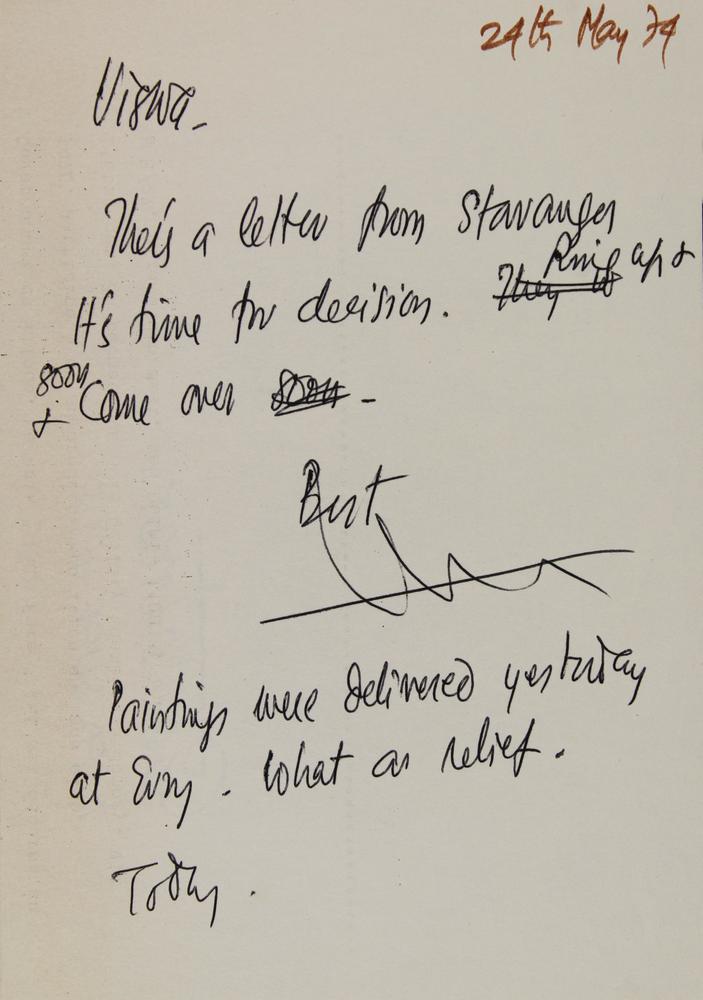 24th May 74
Viswa -
Ther's a letter from Stavanger
It's time for decision. They Ring up &
soon
& Come over soon -
Best
Paintings were delivered yesterday
at Evry. What a relief.
Today.